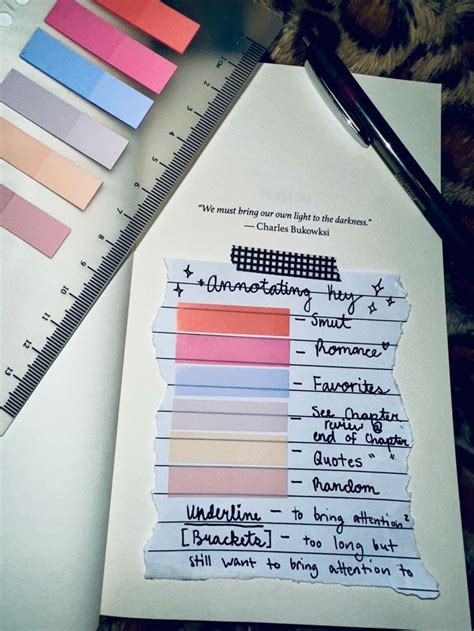 "We must bring our own light to the darkness."
— Charles Bukowksi
*Annotating Key
- Smut
- Romance
- Favorites
- See Chapter
review @
end of Chapter
- Quotes " "
- Random
Underline - to bring attention²
[Brackets] - too long but
still want to bring attention to